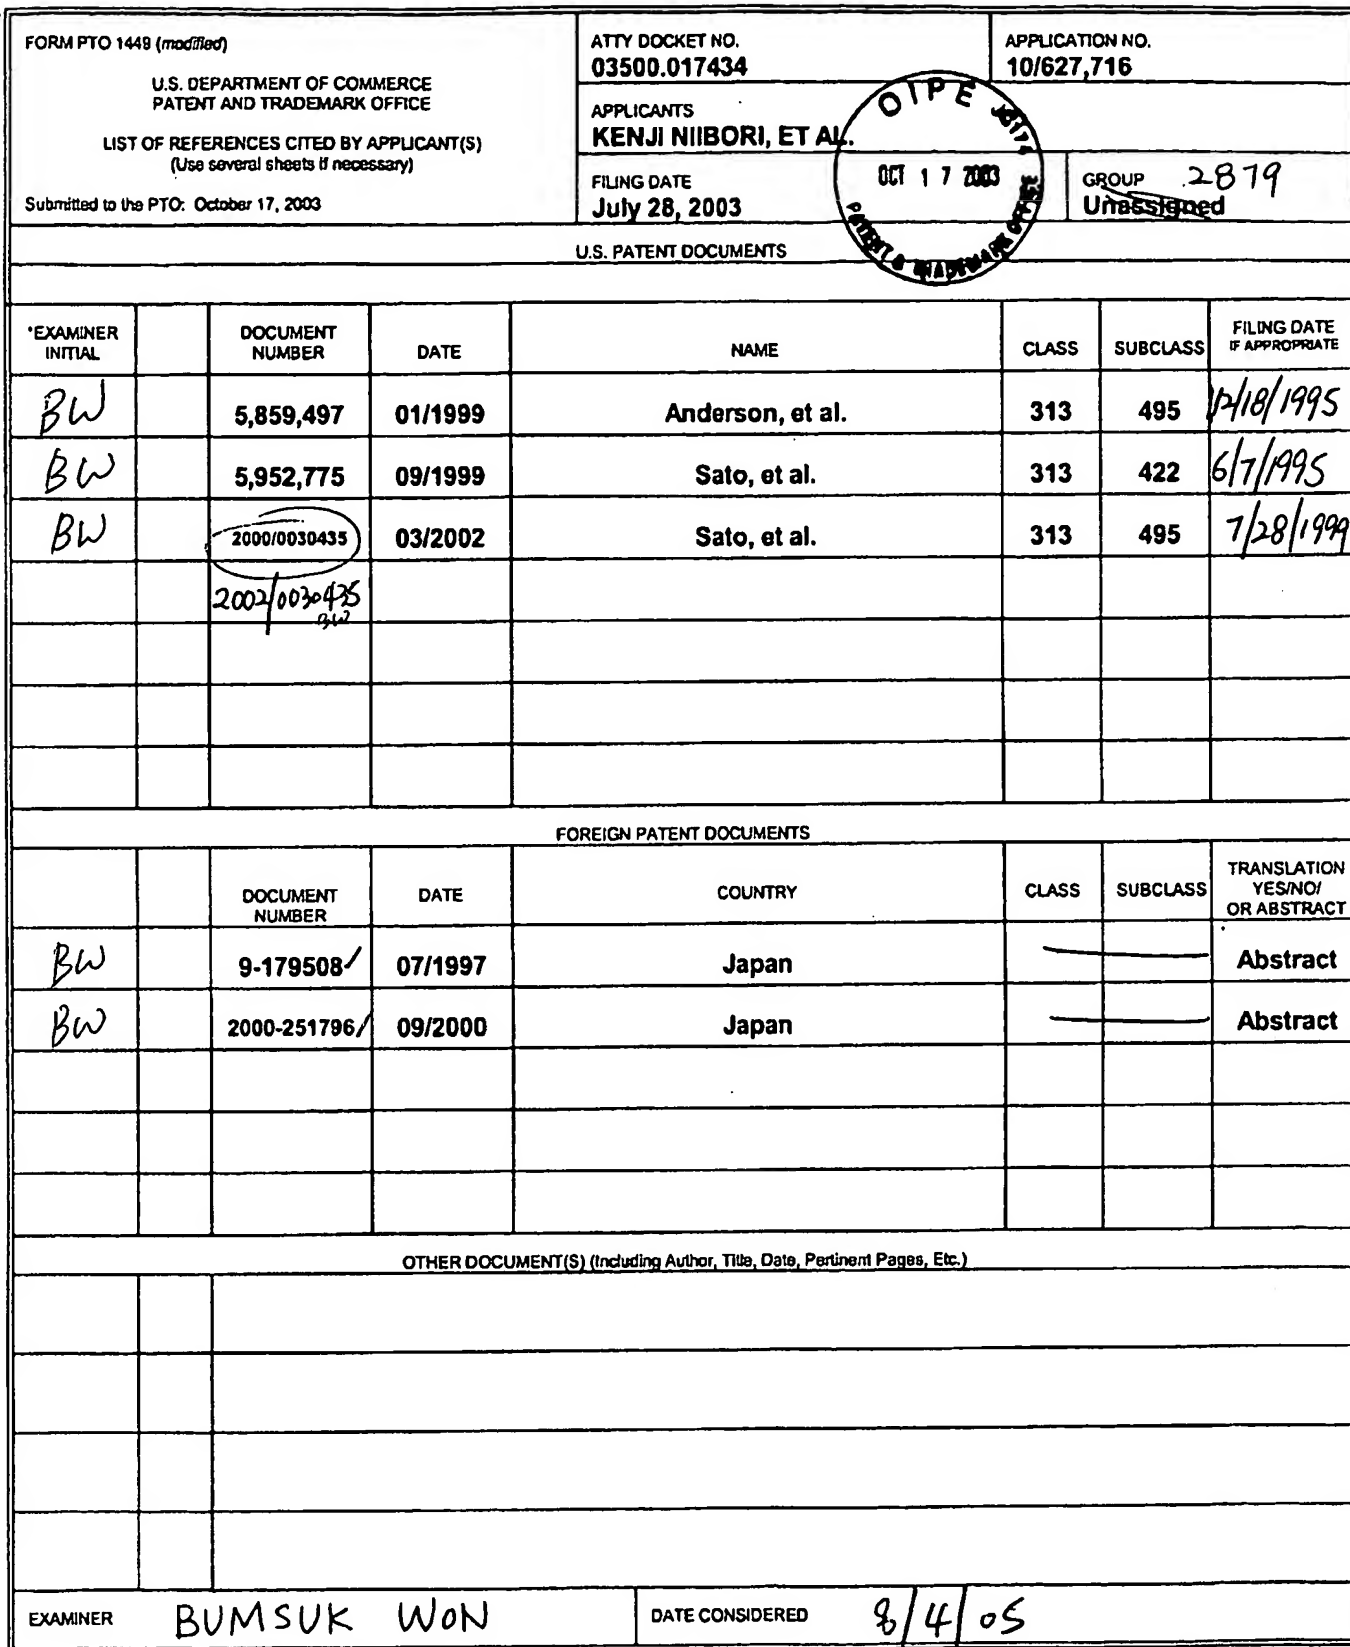 FORM PTO 1449 (modified)
U.S. DEPARTMENT OF COMMERCE
PATENT AND TRADEMARK OFFICE
LIST OF REFERENCES CITED BY APPLICANT(S)
(Use several sheets if necessary)
Submitted to the PTO: October 17, 2003
ATTY DOCKET NO.
03500.017434
APPLICATION NO.
10/627,716
APPLICANTS
KENJI NIIBORI, ET AL.
FILING DATE
July 28, 2003
GROUP 2879
Unassigned
OIPE
OCT 17 2003
PATENT & TRADEMARK OFFICE
U.S. PATENT DOCUMENTS
*EXAMINER INITIAL DOCUMENT NUMBER DATE NAME CLASS SUBCLASS FILING DATE IF APPROPRIATE
BW 5,859,497 01/1999 Anderson, et al. 313 495 12/18/1995
BW 5,952,775 09/1999 Sato, et al. 313 422 6/7/1995
BW 2000/0030435 03/2002 Sato, et al. 313 495 7/28/1999
2002/0030435
BW
FOREIGN PATENT DOCUMENTS
DOCUMENT NUMBER DATE COUNTRY CLASS SUBCLASS TRANSLATION YES/NO/ OR ABSTRACT
BW 9-179508 07/1997 Japan Abstract
BW 2000-251796 09/2000 Japan Abstract
OTHER DOCUMENT(S) (Including Author, Title, Date, Pertinent Pages, Etc.)
EXAMINER BUMSUK WON DATE CONSIDERED 8/4/05